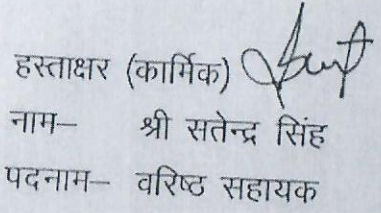 हस्ताक्षर (कार्मिक)
नाम– श्री सतेन्द्र सिंह
पदनाम– वरिष्ठ सहायक